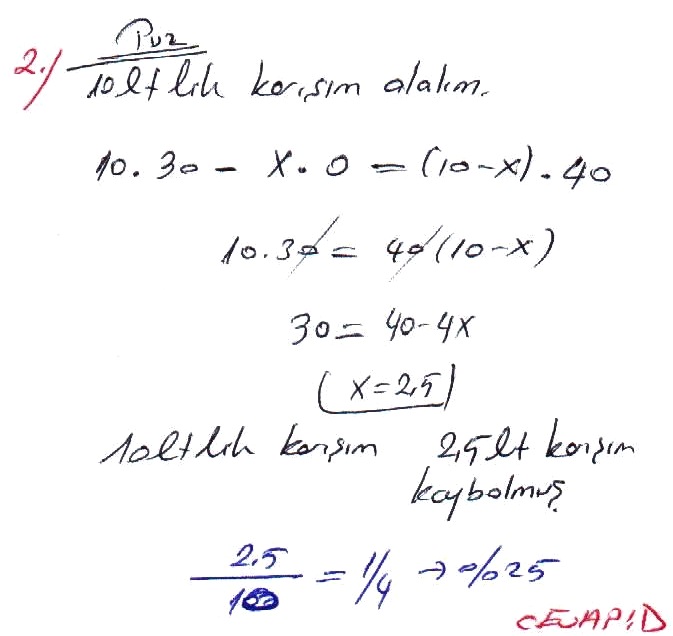 2.) Puz
10lt lik karışım alalım.
10.30 - X.0 = (10-x).40
10.30 = 40(10-x)
30 = 40-4X
(X=2,5)
10lt lik karışım 2,5lt karışım
kaybolmuş
2.5/10 = 1/4 → %25
CEVAP:D